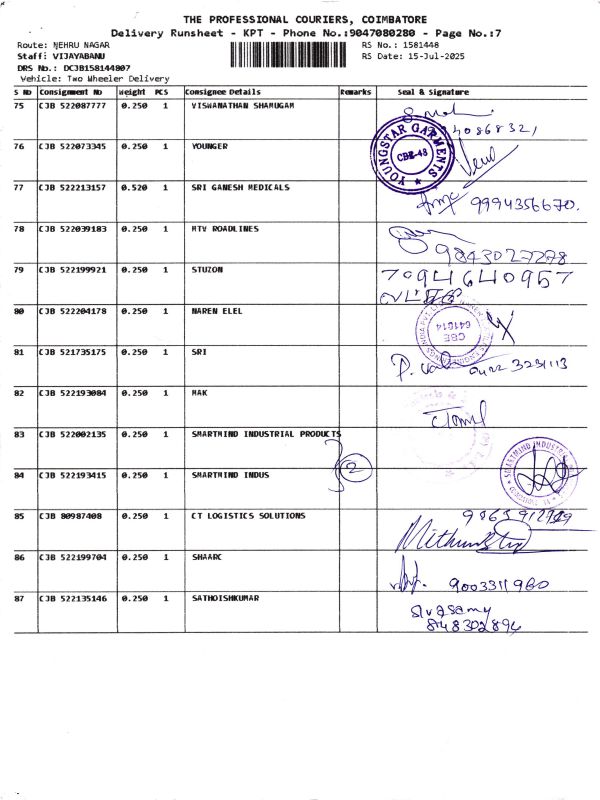 THE PROFESSIONAL COURIERS, COIMBATORE
Delivery Runsheet - KPT - Phone No.:9047080280 - Page No.:7
Route: NEHRU NAGAR RS No.: 1581448
Staff: VIJAYABANU RS Date: 15-Jul-2025
DRS No.: DCJB158144807
Vehicle: Two Wheeler Delivery
S No Consignment No Weight PCS Consignee Details Remarks Seal & Signature
75 CJB 522087777 0.250 1 VISWANATHAN SHAMUGAM
76 CJB 522073345 0.250 1 YOUNGER
YOUNGSTAR GARMENTS CBE-48
77 CJB 522213157 0.520 1 SRI GANESH MEDICALS 9994356670.
78 CJB 522039183 0.250 1 MTV ROADLINES 9843027278
79 CJB 522199921 0.250 1 STUZON 7094640957
80 CJB 522204178 0.250 1 NAREN ELEL
CBE 641014
81 CJB 521735175 0.250 1 SRI 0422 3231113
82 CJB 522193084 0.250 1 MAK Tamil
83 CJB 522002135 0.250 1 SMARTMIND INDUSTRIAL PRODUCTS
84 CJB 522193415 0.250 1 SMARTMIND INDUS 2
SMARTMIND INDUSTRI
85 CJB 80987408 0.250 1 CT LOGISTICS SOLUTIONS
86 CJB 522199704 0.250 1 SHAARC 9003311960
87 CJB 522135146 0.250 1 SATHOISHKUMAR Sivasamy
848302894